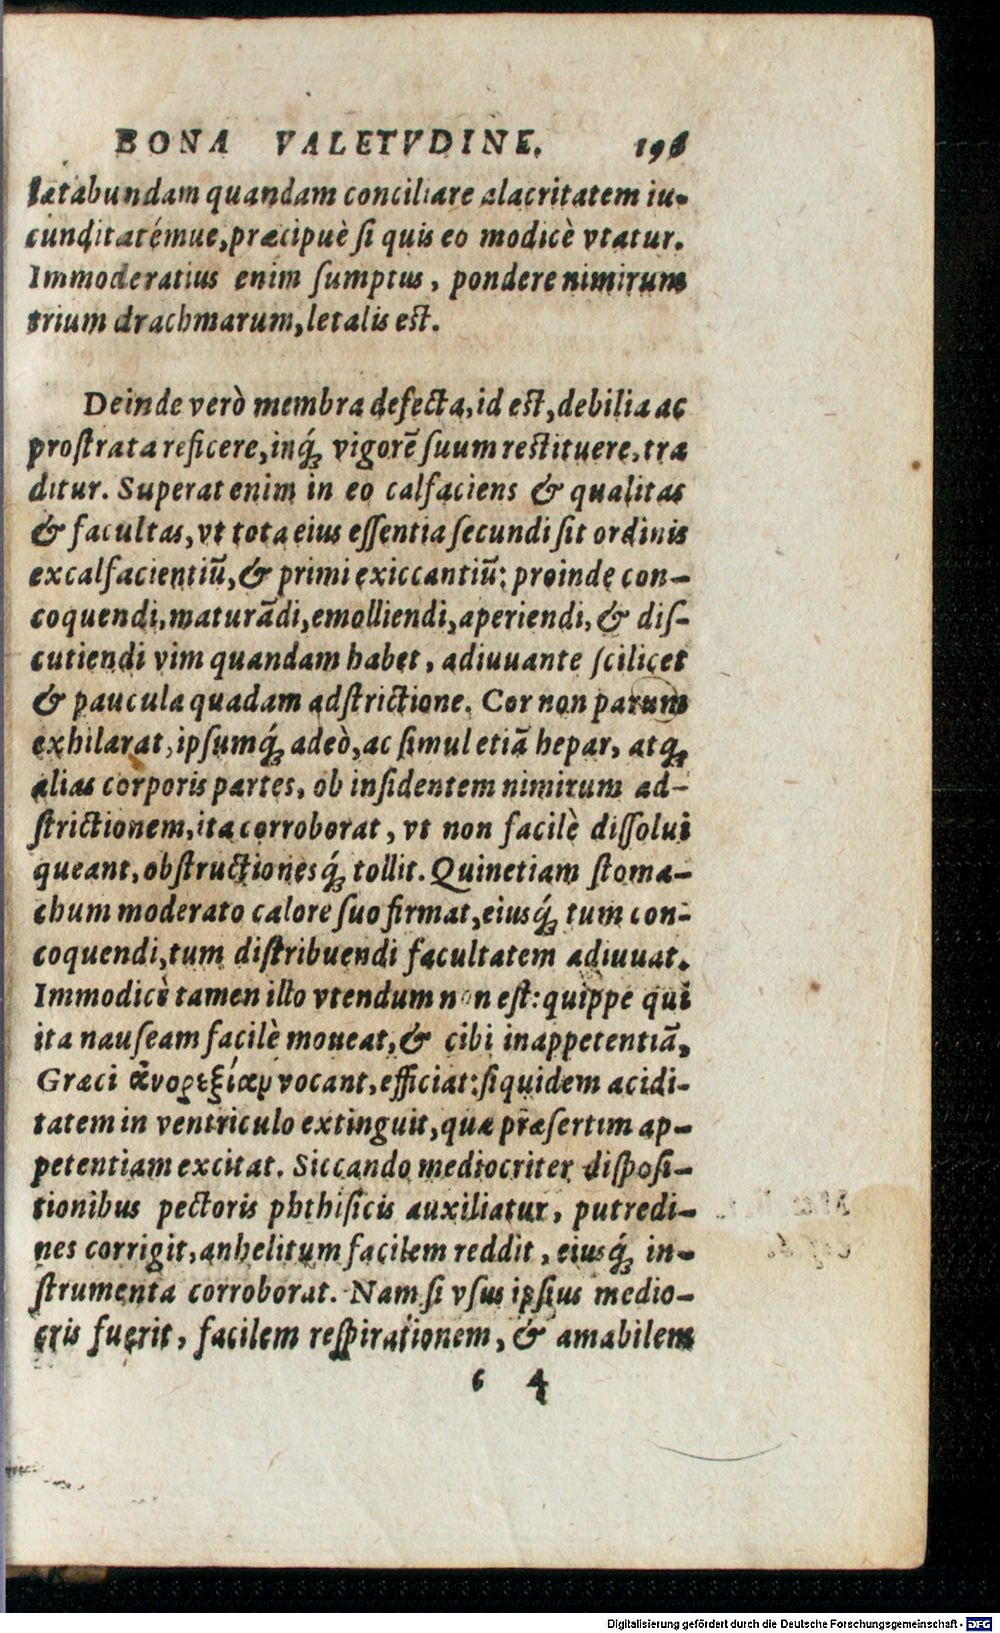 BONA VALETVDINE. 196
lætabundam quandam conciliare alacritatem iu-
cunditatémue, præcipuè ſi quis eo modicè vtatur.
Immoderatius enim ſumptus, pondere nimirum
trium drachmarum, letalis eſt.
Deinde verò membra defecta, id eſt, debilia ac
proſtrata reficere, inq́ꝫ vigorē ſuum reſtituere, tra
ditur. Superat enim in eo calfaciens & qualitas
& facultas, vt tota eius eſſentia ſecundi ſit ordinis
excalfacientiū, & primi exiccantiū: proinde con-
coquendi, maturādi, emolliendi, aperiendi, & diſ-
cutiendi vim quandam habet, adiuuante ſcilicet
& paucula quadam adſtrictione. Cor non parum
exhilarat, ipſumq́ꝫ adeò, ac ſimul etiā hepar, atqꝫ
alias corporis partes, ob inſidentem nimirum ad-
ſtrictionem, ita corroborat, vt non facilè diſſolui
queant, obſtructionesq́ꝫ tollit. Quinetiam ſtoma-
chum moderato calore ſuo firmat, eiusq́ꝫ tum con-
coquendi, tum diſtribuendi facultatem adiuuat.
Immodicè tamen illo vtendum non eſt: quippe qui
ita nauſeam facilè moueat, & cibi inappetentiā,
Græci ἀνορεξίαν vocant, efficiat: ſiquidem acidi-
tatem in ventriculo extinguit, quæ præſertim ap-
petentiam excitat. Siccando mediocriter diſpoſi-
tionibus pectoris phthiſicis auxiliatur, putredi-
nes corrigit, anhelitum facilem reddit, eiusq́ꝫ in-
ſtrumenta corroborat. Nam ſi vſus ipſius medio-
cris fuerit, facilem reſpirationem, & amabilem
c 4
Digitalisierung gefördert durch die Deutsche Forschungsgemeinschaft - DFG